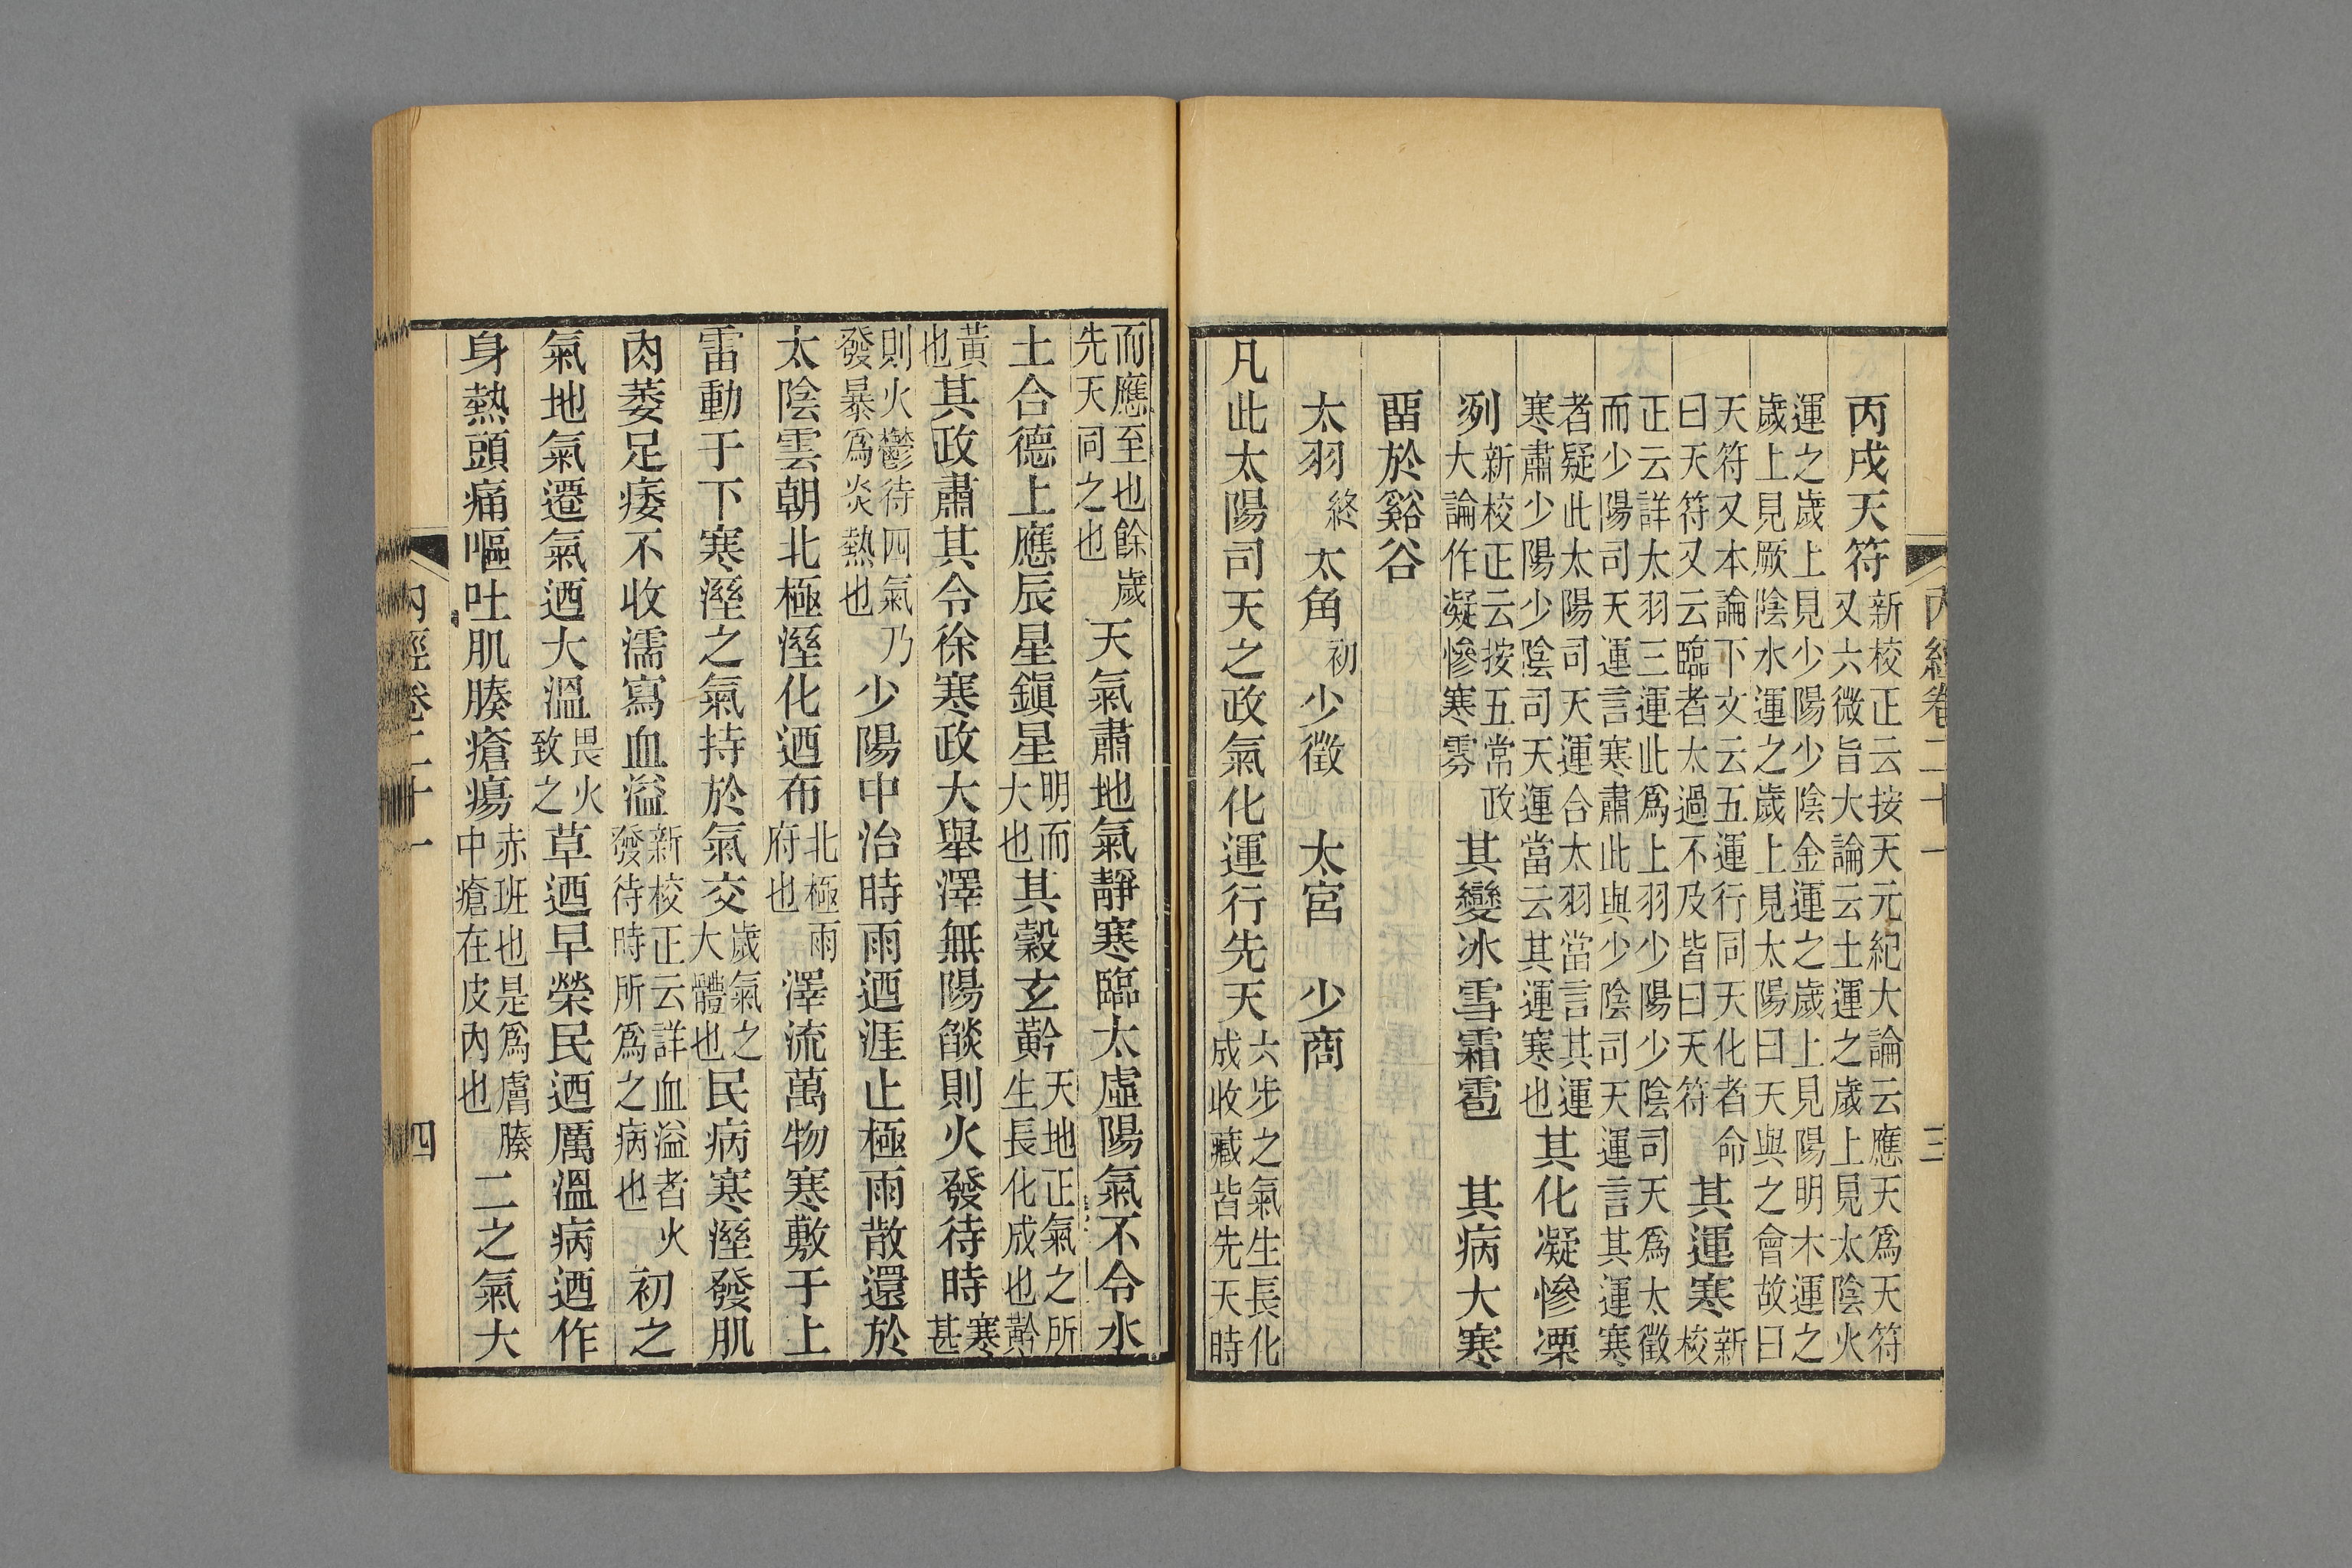 內經卷二十一 三
丙戌天符新校正云按天元紀大論云應天爲天符
又六微旨大論云土運之歲上見太陰火
運之歲上見少陽少陰金運之歲上見陽明木運之
歲上見厥陰水運之歲上見太陽曰天與之會故曰
天符又本論下文云五運行同天化者命
曰天符又云臨者太過不及皆曰天符其運寒新
校
正云詳太羽三運此爲上羽少陽少陰司天爲太徵
而少陽司天運言寒肅此與少陰司天運言其運寒
者疑此太陽司天運合太羽當言其運
寒肅少陽少陰司天運當云其運寒也其化凝慘凓
冽新校正云按五常政
大論作凝慘寒雰其變冰雪霜雹 其病大寒
畱於谿谷
太羽終太角初少徵 太宮 少商
凡此太陽司天之政氣化運行先天六步之氣生長化
成收藏皆先天時
而應至也餘歲
先天同之也天氣肅地氣靜寒臨太虛陽氣不令水
土合德上應辰星鎭星明而
大也其穀玄黅天地正氣之所
生長化成也黅
黃
也其政肅其令徐寒政大舉澤無陽燄則火發待時寒
甚
則火鬱待四氣乃
發暴爲炎熱也少陽中治時雨迺涯止極雨散還於
太陰雲朝北極溼化迺布北極雨
府也澤流萬物寒敷于上
雷動于下寒溼之氣持於氣交歲氣之
大體也民病寒溼發肌
肉萎足痿不收濡寫血溢新校正云詳血溢者火
發待時所爲之病也初之
氣地氣遷氣迺大溫畏火
致之草迺早榮民迺厲溫病迺作
身熱頭痛嘔吐肌腠瘡瘍赤班也是爲膚腠
中瘡在皮內也二之氣大
內經卷二十一 四